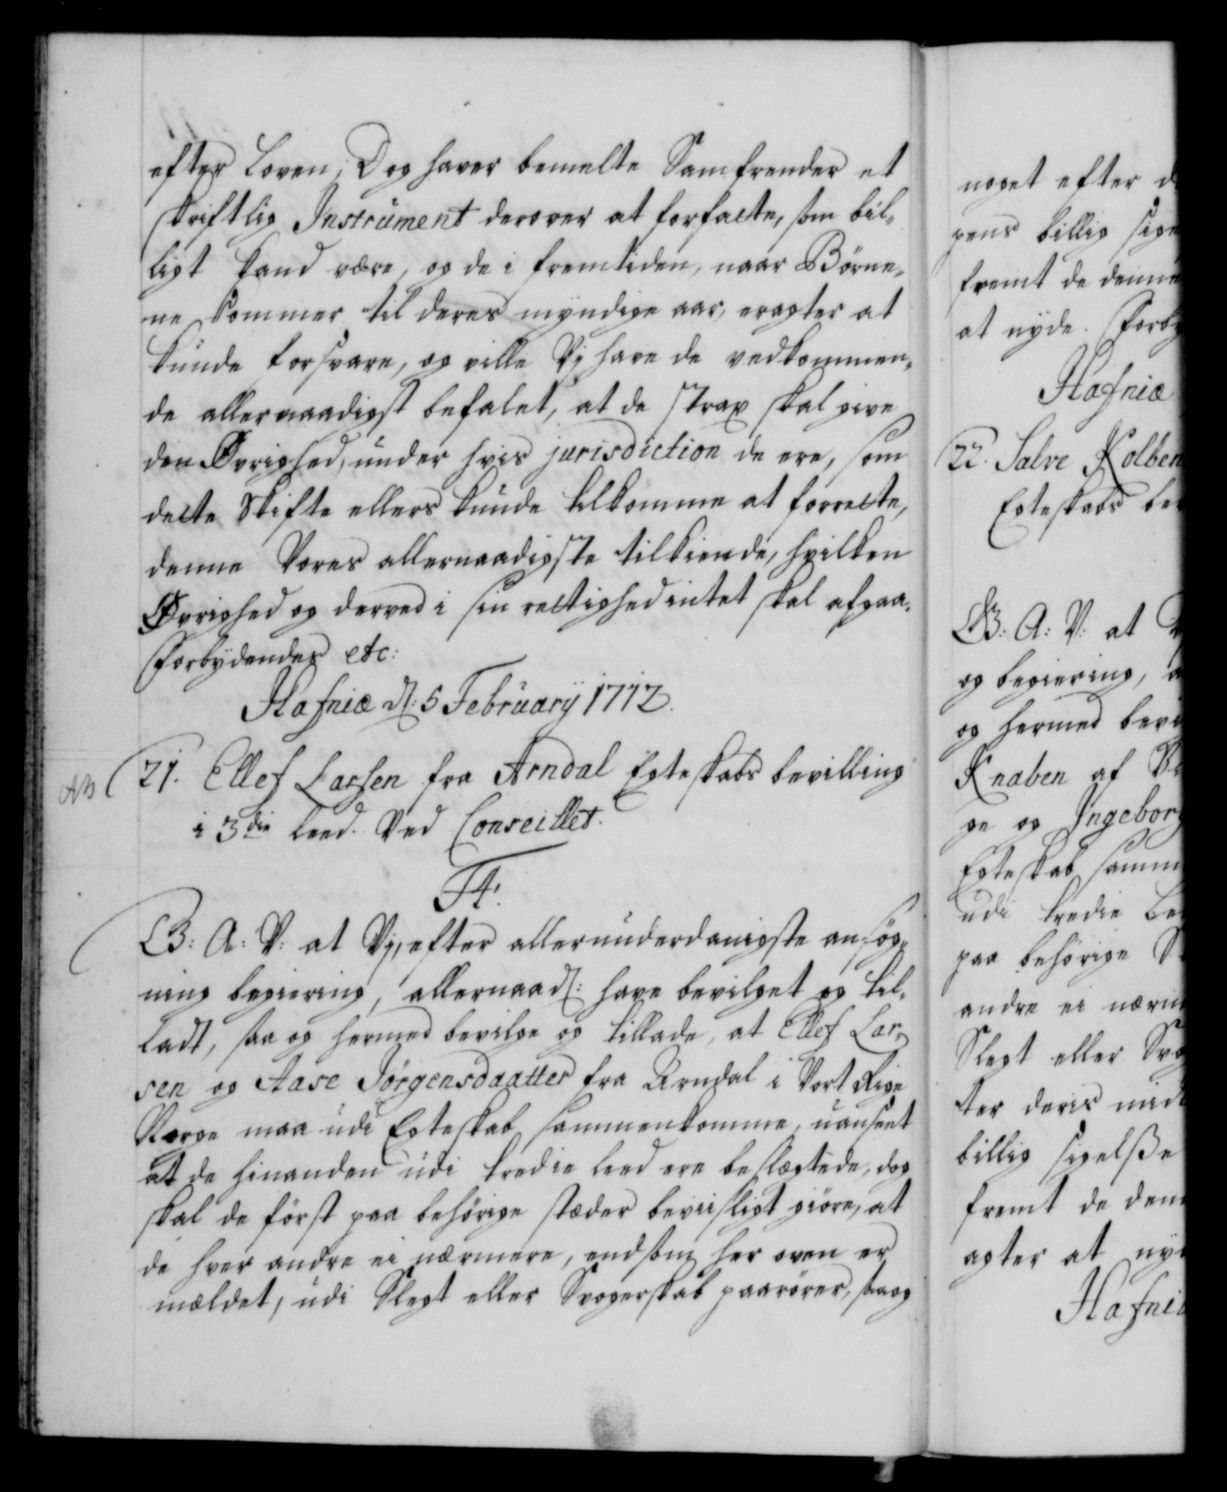 efter Loven; Dog haver bemelte Samfrender et
skriftlig Instrument derover at forfatte, som bil-
ligt kand være, og de i fremtiden, naar Børne-
ne kommer til deres myndige aar, eragter at
kunde forsvare, og ville Vj have de vedkommen-
de allernaadigst befalet, at de strax skal give
den Øvrighed, under hvis jurisdiction de ere, som
dette Skifte ellers kunde tilkomme at forrette,
denne Vores allernaadigste tilkiende, hvilken
Øvrighed og derved i sin rettighed intet skal afgaa.
Forbydendes etc:
Hafniæ d: 5 February 1712.
21. Ellef Larsen fra Arndal Egteskabs bevilling
i 3die Leed. Ved Conseillet.
F4.
G: A: V: at Vj, efter allerunderdanigste ansøg-
ning begiering, allernaad: have bevilget og til-
ladt, saa og hermed bevilge og tillade, at Ellef Lar-
sen og Aase Jørgensdaatter fra Arndal i Vort Rige
Norge maa udi Egteskab sammenkomme, uanseet
at de hinanden udi tredie leed ere beslægtede, dog
skal de først paa behørige stæder beviisligt giøre, at
de hver andre ei nærmere, end som her oven er
mældet, udi Slegt eller Svogerskab paarører, saa og
noget efter d
gens billig sige
fremt de denne
at nyde. Forby
Hafniæ
22. Salve Kolben
Egteskabs bev
G: A: V: at V
og begiering, a
og hermed bevi
Knaben af
ge og Ingeborg
Egteskab samm
udi tredie Le
paa behørige S
andre ei nærm
Slegt eller Svog
ter deris mid
billig sigelße
fremt de denn
agter at nyd
Hafniæ